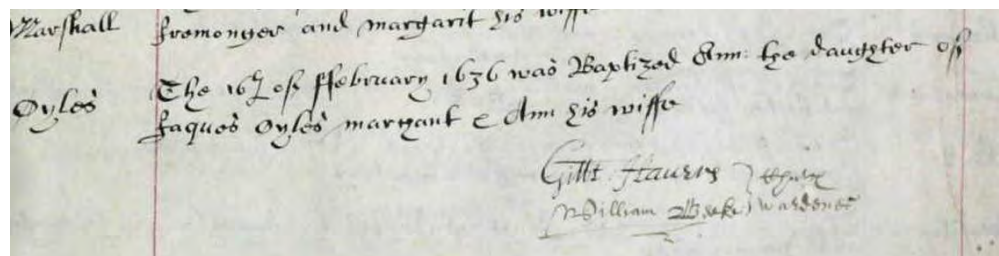 Marshall Iremonger and margarit his wiffe
The 16th of ffebruary 1636 was Baptized Ann: the daughter of
Oyles Jaques Oyles marchant & Ann his wiffe
Gilbt. Havers } Church
William } wardenes